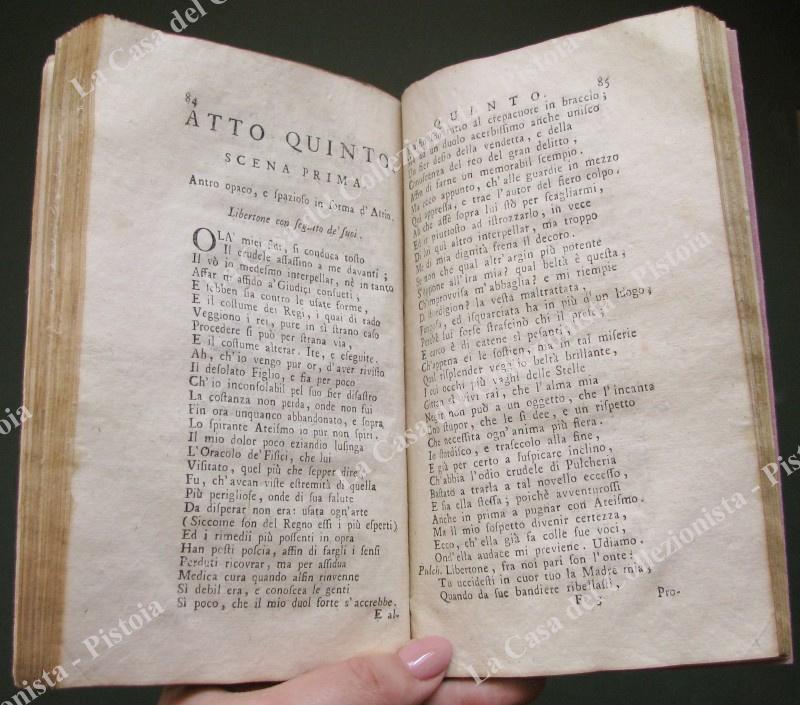 84
ATTO QUINTO
SCENA PRIMA
Antro opaco, e spazioso in forma d'Atrio.
Libertone con seguito de' suoi.
OLA' miei fidi, si conduca tosto
Il crudele assassino a me davanti;
Il vò io medesmo interpellar, nè in tanto
Affar m' affido a' Giudici consueti;
E sebben sia contro le usate forme,
E il costume dei Regi, i quai di rado
Veggiono i rei, pure in sì strano caso
Procedere si può per strana via,
E il costume alterar. Ite, e eseguite.
Ah, ch'io vengo pur or, d'aver rivisto
Il desolato Figlio, e fia per poco
Ch'io inconsolabil pel suo fier disastro
La costanza non perda, onde non fui
Fin ora unquanco abbandonato, e sopra
Lo spirante Ateismo io pur non spiri.
Il mio dolor poco eziandio lusinga
L'Oracolo de' Fisici, che lui
Visitato, quel più che sepper dire,
Fu, ch'avean viste estremità di quella
Più perigliose, onde di sua salute
Da disperar non era: usata ogn'arte
(Siccome son del Regno essi i più esperti)
Ed i rimedii più possenti in opra
Han posti poscia, affin di fargli i sensi
Perduti ricovrar, ma per assidua
Medica cura quando alfin rinvenne
Sì debil era, e conoscea le genti
Sì poco, che il mio duol forte s'accrebbe.
E al-
85
QUINTO.
al crepacuore in braccio;
ad un duolo acerbissimo anche unisco
Un fier desio della vendetta, e della
Conoscenza del reo del gran delitto,
Affin di farne un memorabil scempio.
Ma ecco appunto, ch'alle guardie in mezzo
Qui appressa, e trae l'autor del fiero colpo.
Ah che affè sopra lui stò per scagliarmi,
Ed ir piuttosto ad istrozzarlo, in vece
Di in quì altro interpellar, ma troppo
Me di mia dignità frena il decoro.
Se non che qual altr'argin più potente
S'oppone all'ira mia? qual beltà è questa,
Ch'improvvisa m'abbaglia? e mi riempie
D' stordigion? la vesta maltrattata,
Fangosa, ed isquarciata ha in più d'un luogo,
Perchè lui forse strascinò chi il prese;
E carco è di catene sì pesanti,
Ch'appena ei le sostien, ma in tai miserie
Qual risplender vegg'io beltà brillante,
I cui occhi più vaghi delle Stelle
Gittan sì vivi rai, che l'alma mia
Negar non può a un oggetto, che l'incanta
Uno stupor, che le si dee, e un rispetto
Che necessita ogn'anima più fiera.
Io stordisco, e trasecolo alla fine,
E già per certo a suspicare inclino,
Ch'abbia l'odio crudele di Pulcheria
Bastato a trarla a tal novello eccesso,
E sia ella stessa; poichè avventurossi
Anche in prima a pugnar con Ateismo.
Ma il mio sospetto divenir certezza,
Ecco, ch'ella già fa colle sue voci,
Ond'ella audace mi previene. Udiamo.
Pulch. Libertone, fra noi pari son l'onte:
Tu uccidesti in cuor tuo la Madre mia,
Quando da sue bandiere ribellasti,
F Pro-
La Casa del Collezionista - Pistoia